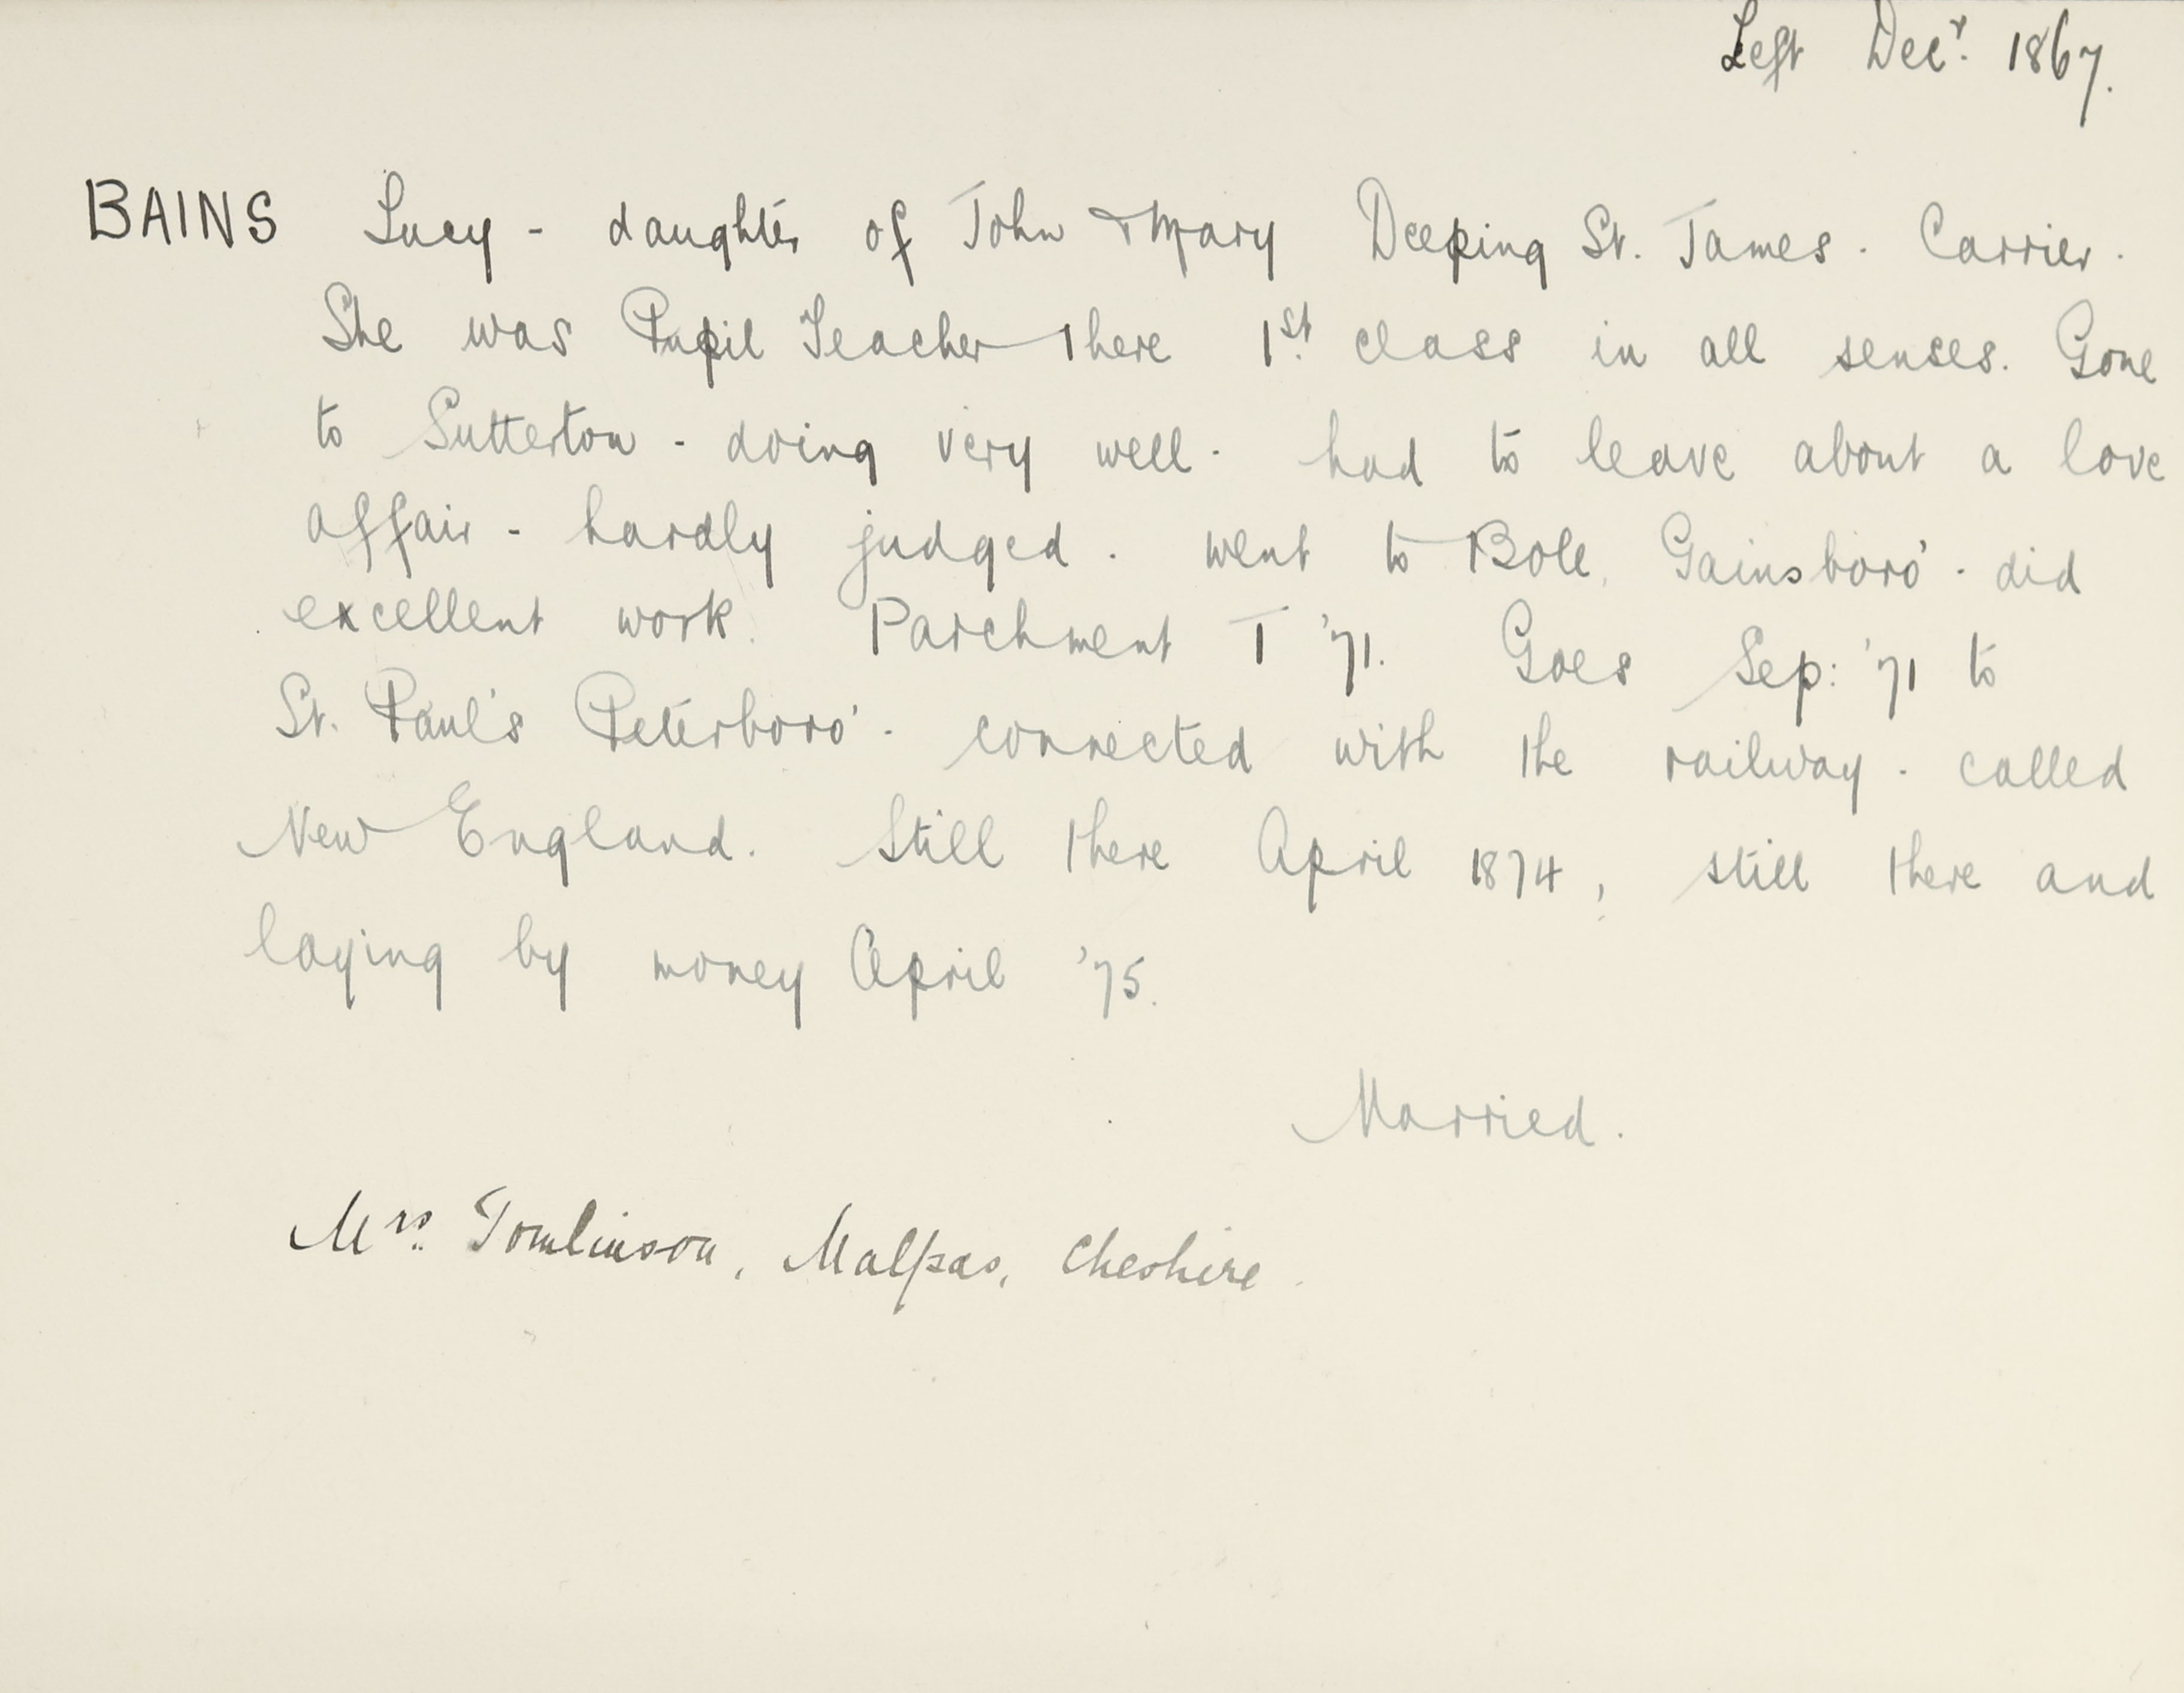 Left Decr. 1867.
BAINS Lucy - daughter of John & Mary Deeping St. James. Carrier.
She was Pupil Teacher there 1st class in all senses. Gone
to Sutterton - doing very well. had to leave about a love
affair - hardly judged. went to Bole, Gainsboro' - did
excellent work. Parchment T '71. Goes Sep: '71 to
St. Paul's Peterboro' - connected with the railway - called
New England. Still there April 1874, still there and
laying by money April '75.
Married.
Mrs. Tomlinson, Malpas, Cheshire.